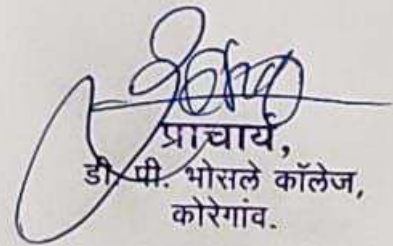 प्राचार्य,
डी. पी. भोसले कॉलेज,
कोरेगांव.